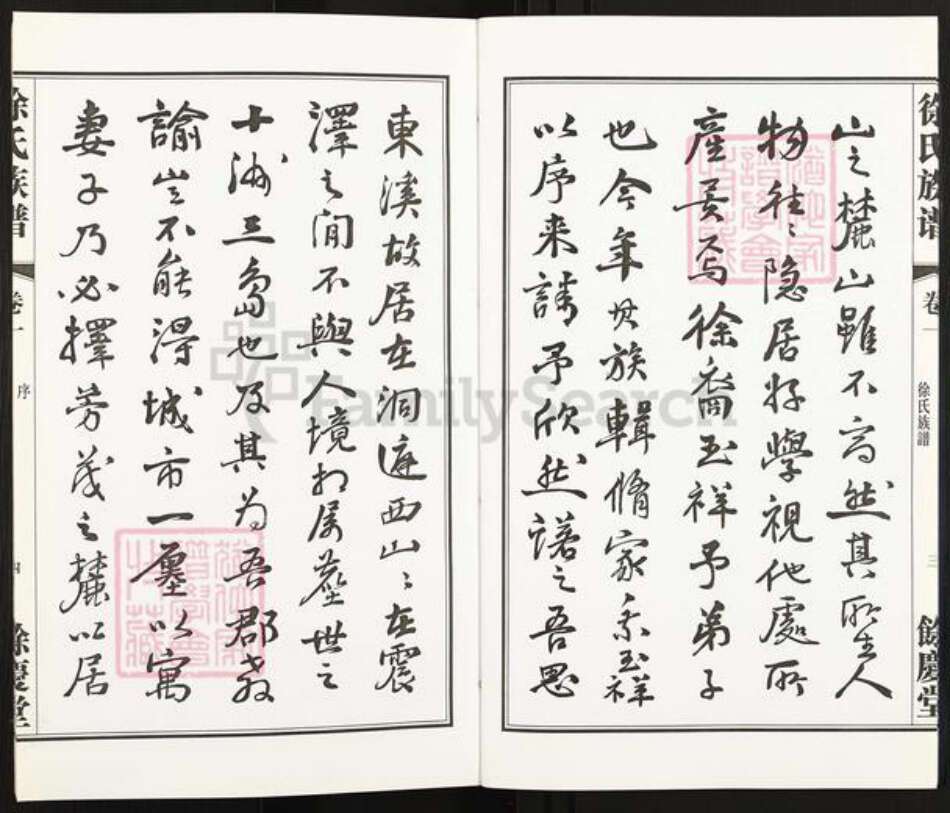 徐氏族譜
卷一
徐氏族譜
三
餘慶堂
山之麓山雖不高然其所生人
物往往隐居好學視他處所
産异焉徐裔玉祥予弟子
也今年其族輯脩家乘玉祥
以序来請予欣然諾之吾思
東溪故居在洞遮西山山在震
澤之间不與人境相屬塵世之
十洲三島也及其为吾郡教
諭豈不能得城市一廛以寓
妻子乃必擇芳茂之麓以居
徐氏族譜
卷一
序
四
餘慶堂
FamilySearch